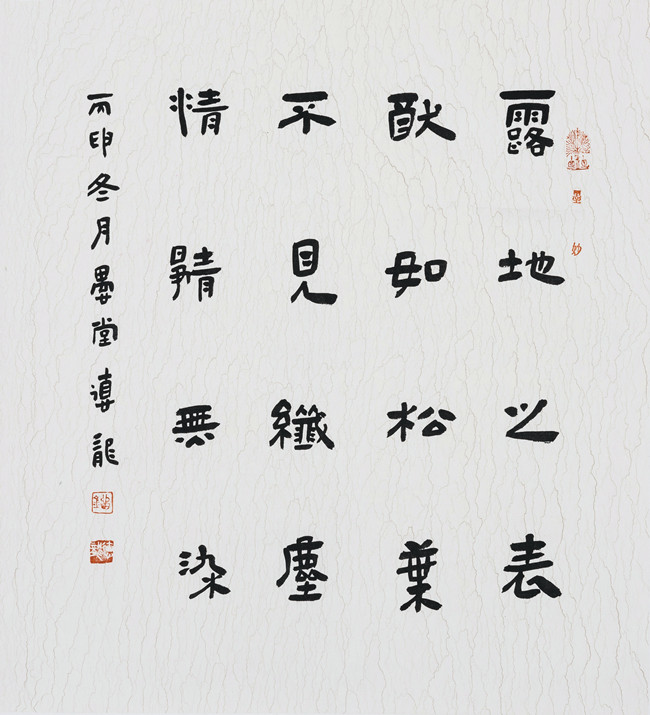 露地之表
猷如松葉
不見纖塵
情無染
丙申冬月堂龍